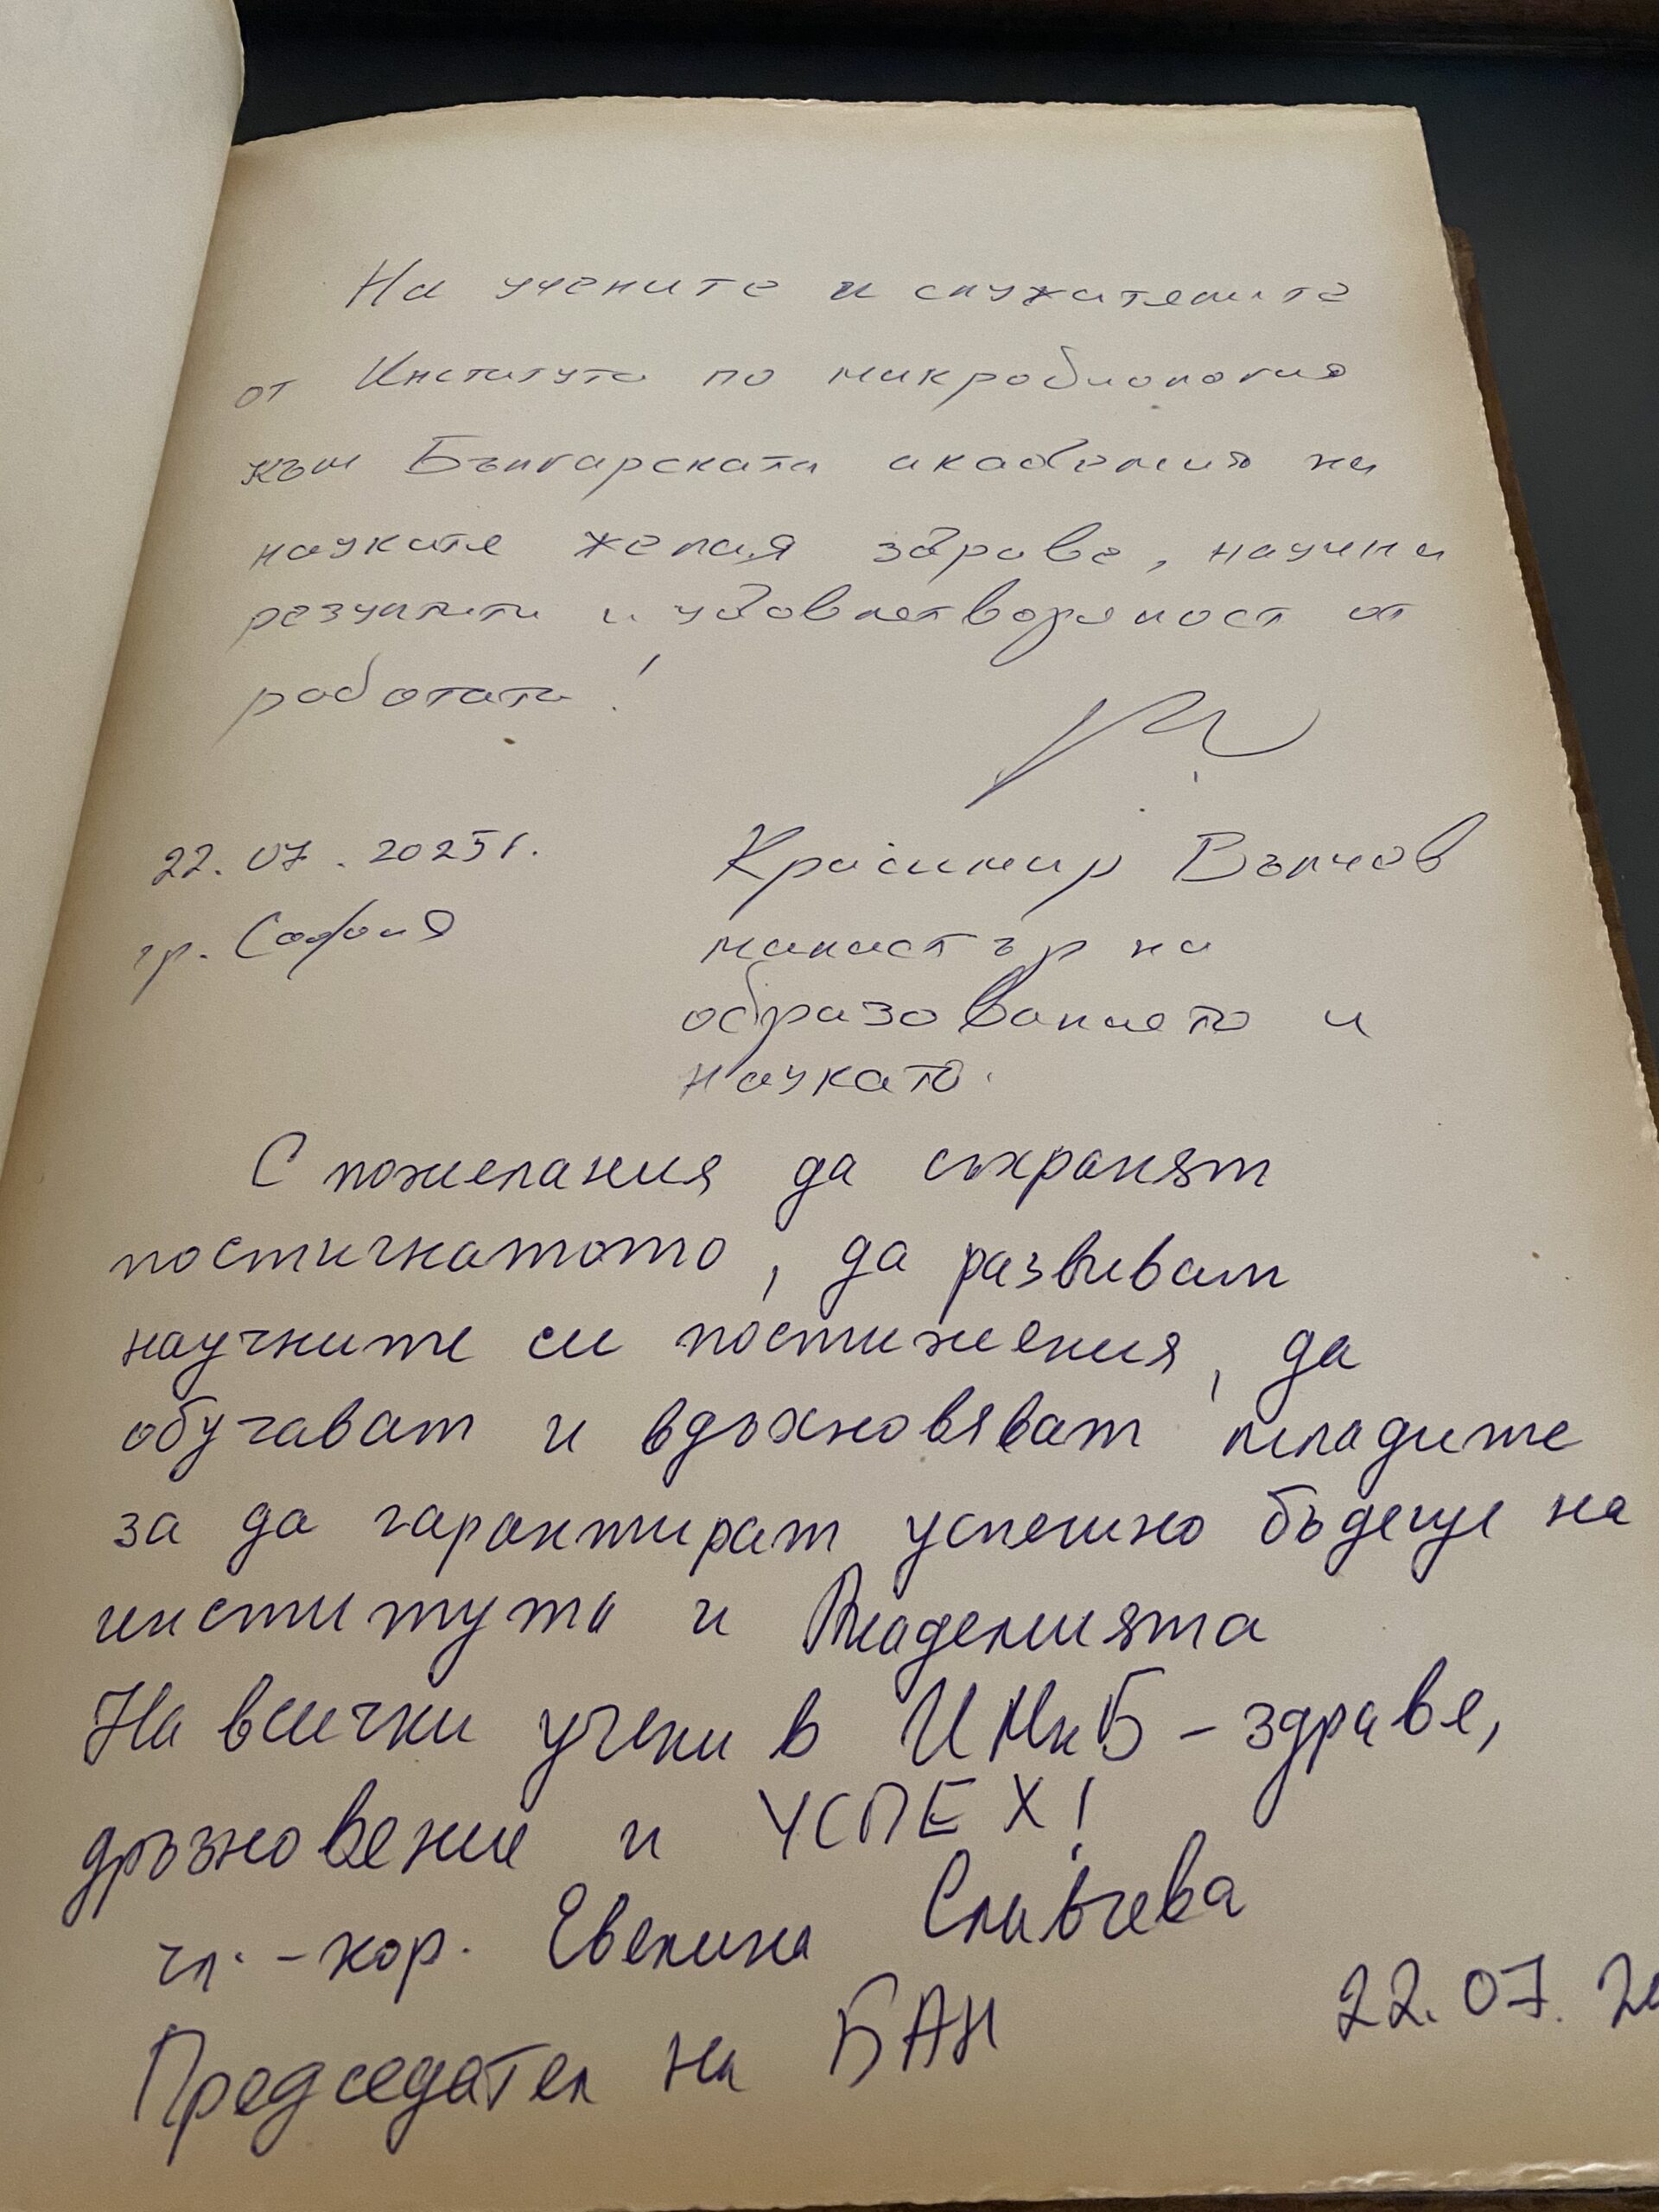 На учените и служителите
от Института по микробиология
към Българската академия на
науките желая здраве, научни
резултати и удовлетвореност от
работата!
22.07.2025г.
гр. София
Красимир Вълчев
министър на
образованието и
науката.
С пожелания да съхранят
постигнатото, да развиват
научните си постижения, да
обучават и вдъхновяват младите
за да гарантират успешно бъдеще на
института и Академията
На всички учени в ИМикБ - здраве,
дръзновение и УСПЕХ!
чл.-кор. Евелина Славчева
Председател на БАН
22.07.20